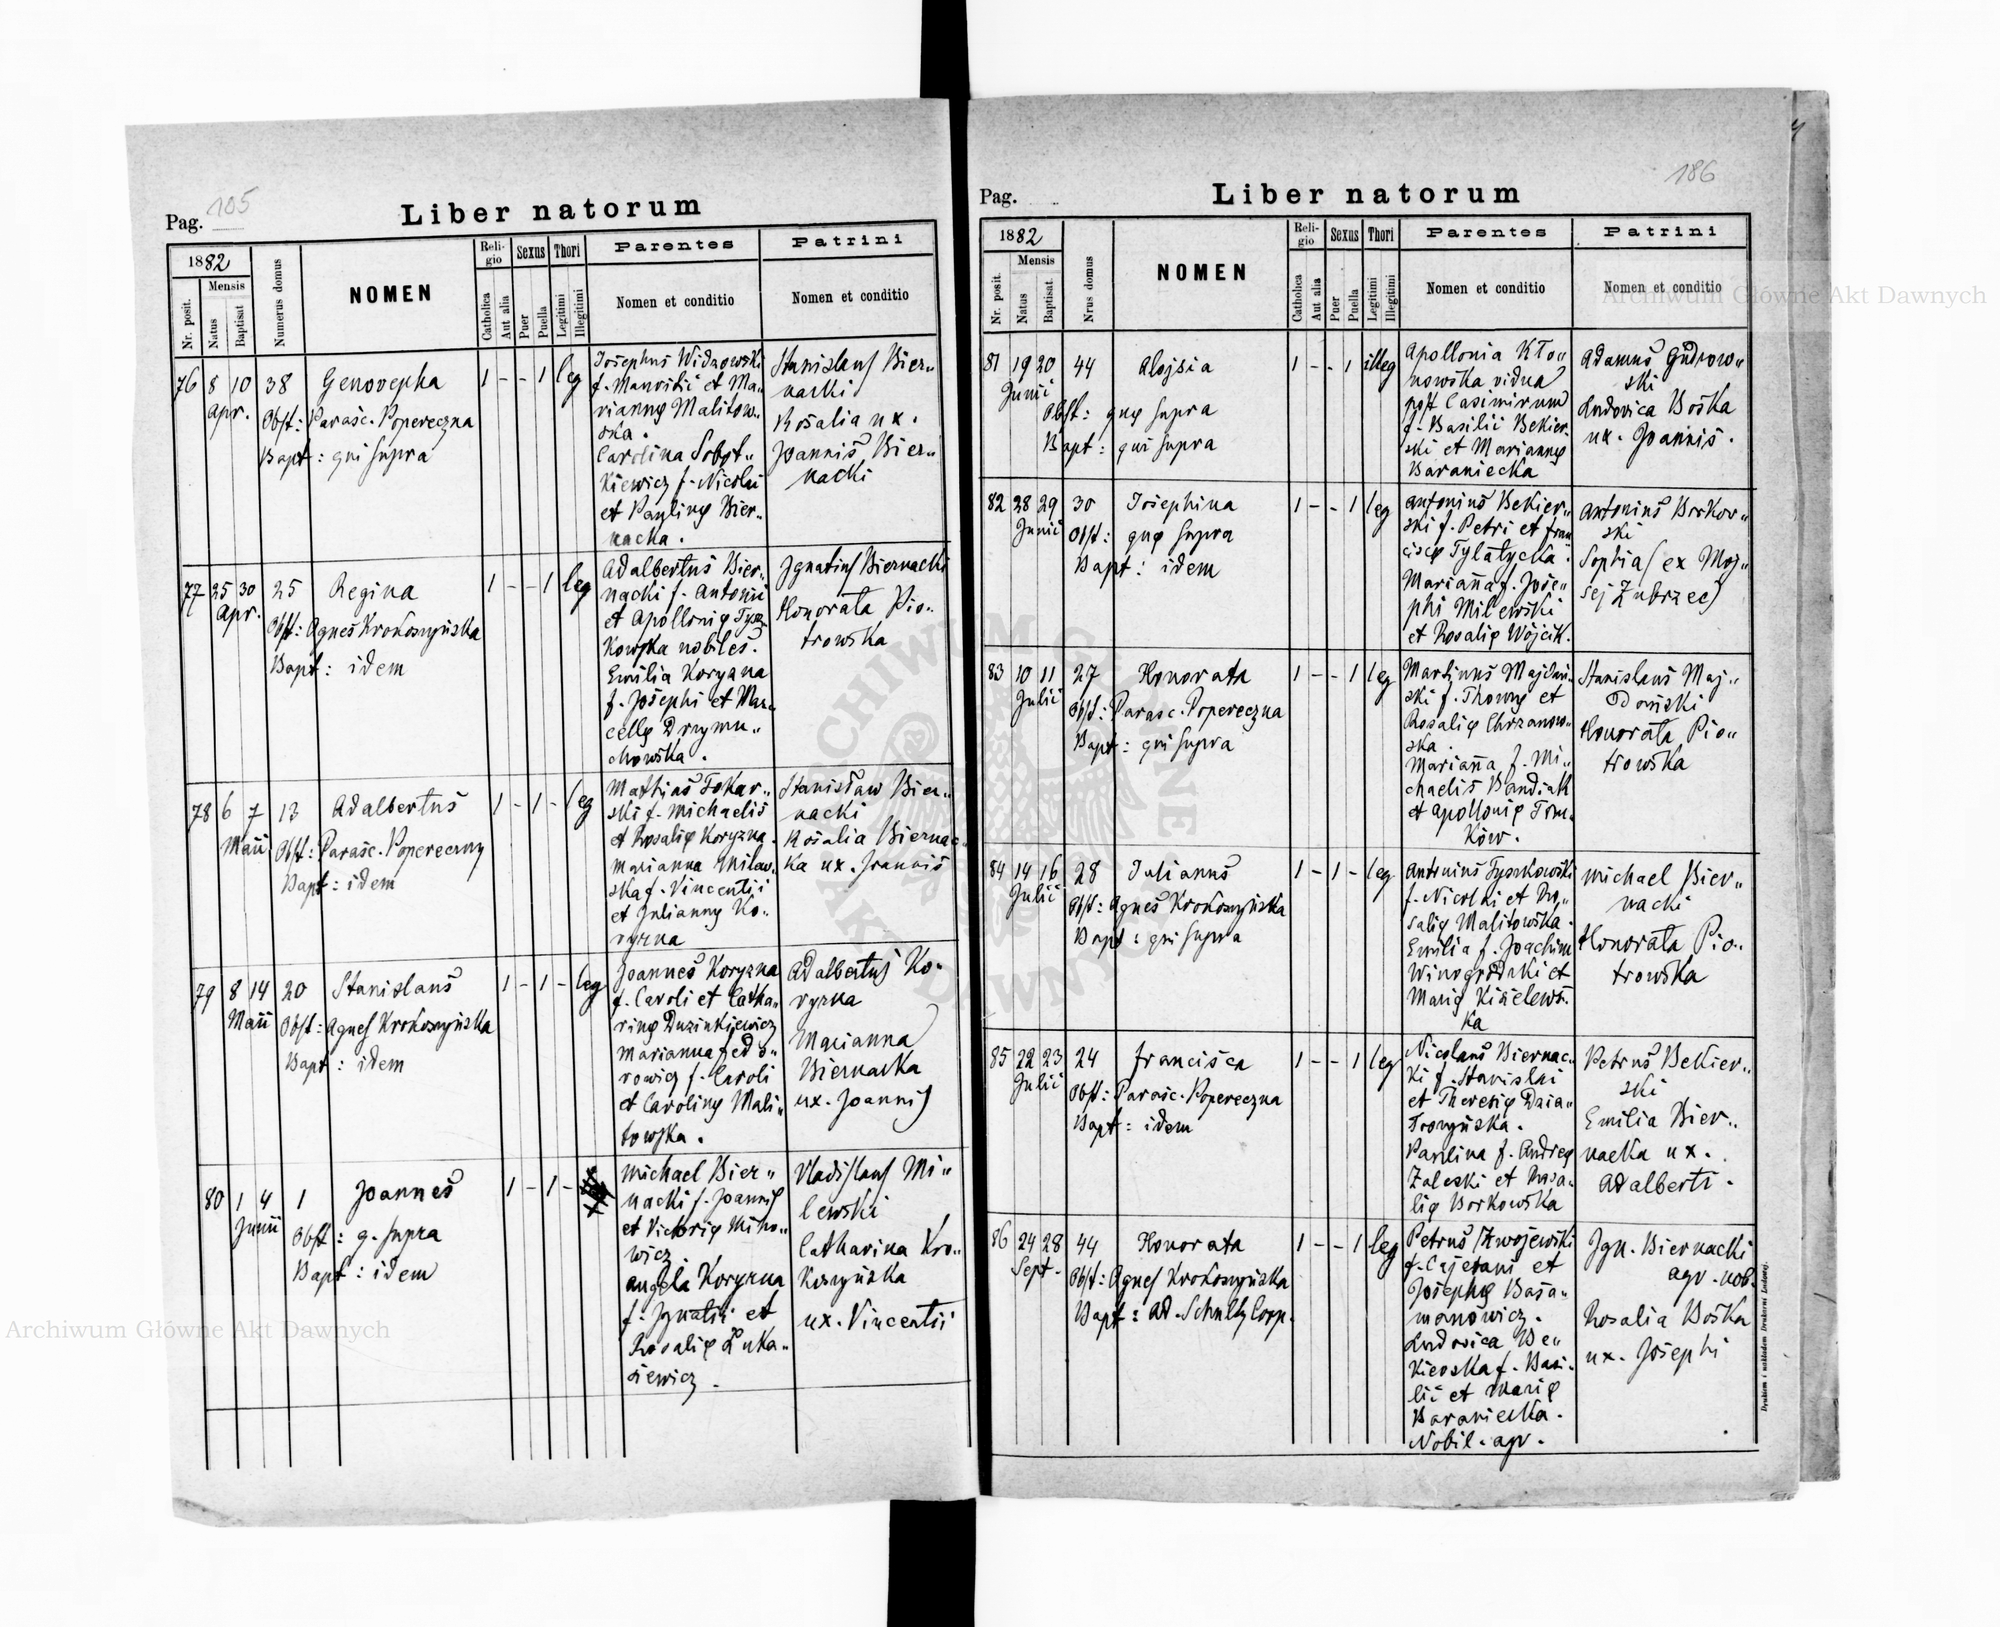 Pag. 105
Liber natorum
1882
Mensis
Nr. posit.
Natus
Baptisat
Numerus domus
NOMEN
Religio
Catholica
Aut alia
Sexus
Puer
Puella
Thori
Legitimi
Illegitimi
Parentes
Nomen et conditio
Patrini
Nomen et conditio
76 8 10 38 Genovepha 1 - - 1 leg
Apr.
Obst: Parasc. Popereczna
Bapt: qui supra
Josephus Widzowski
f. Mauritii et Ma„
riannę Malitow„
ska.
Carolina Sobot„
kiewicz f. Nicolai
et Paulinę Bier„
nacka.
Stanislaus Bier„
nacki
Rosalia ux.
Joannis Bier„
nacki
77 25 30 25 Regina 1 - - 1 leg
Apr.
Obst: Agnes Krokoszyńska
Bapt: idem
Adalbertus Bier„
nacki f. Antonii
et Apollonię Tysz„
kowska nobiles.
Emilia Koryzna
f. Josephi et Mar„
cellę Drzymu„
chowska.
Ignatius Biernacki
Honorata Pio„
trowska
78 6 7 13 Adalbertus 1 - 1 - leg
Maii
Obst: Parasc. Popereczny
Bapt: idem
Mathias Tokar„
ski f. Michaelis
et Rosalię Koryzna.
Marianna Milew„
ska f. Vincentii
et Juliannę Ko„
ryzna
Stanisław Bier„
nacki
Rosalia Biernac„
ka ux. Joannis
79 8 14 20 Stanislaus 1 - 1 - leg
Maii
Obst: Agnes Krokoszyńska
Bapt: idem
Joannes Koryzna
f. Caroli et Catha„
rinę Duzinkiewicz
Marianna Fedo„
rowicz f. Caroli
et Carolinę Mali„
towska.
Adalbertus Ko„
ryzna
Marianna
Biernacka
ux. Joannis
80 1 4 1 Joannes 1 - 1 -
Junii
Obst: q. supra
Bapt: idem
Michael Bier„
nacki f. Joannis
et Victorię Mino„
wicz
Angela Koryzna
f. Ignatii et
Rosalię Łuka„
siewicz.
Vladislaus Mi„
lewski
Catharina Kro„
koszyńska
ux. Vincentii
Pag.
186
Liber natorum
1882
Mensis
Nr. posit.
Natus
Baptisat.
Nrus domus
NOMEN
Religio
Catholica
Aut alia
Sexus
Puer
Puella
Thori
Legitimi
Illegitimi
Parentes
Nomen et conditio
Patrini
Nomen et conditio
81 19 20 44 Alojsia 1 - - 1 illeg
Junii
Obst: quę supra
Bapt: qui supra
Apollonia Kło„
nowska vidua
post Casimirum
f. Basilii Bekier„
ski et Mariannę
Baraniecka
Adamus Gudrow„
ski
Ludovica Boska
ux. Joannis.
82 28 29 30 Josephina 1 - - 1 leg
Junii
Obst: quę supra
Bapt: idem
Antonius Bekier„
ski f. Petri et Fran
ciscę Tylatycka.
Marianna f. Jose„
phi Milewski
et Rosalię Wójcik.
Antonius Borkow„
ski
Sophia (ex Moj„
sej Zubrzec)
83 10 11 27 Honorata 1 - - 1 leg
Julii
Obst: Parasc. Popereczna
Bapt: qui supra
Martinus Majdań„
ski f. Thomę et
Rosalię Chrzanow„
ska.
Marianna f. Mi„
chaelis Bandiak
et Apollonię Tom„
ków.
Stanislaus Maj„
dański
Honorata Pio„
trowska
84 14 16 28 Julianus 1 - 1 - leg
Julii
Obst: Agnes Krokoszyńska
Bapt: qui supra
Antonius Tyszkowski
f. Nicolai et Ro„
salię Malitowska.
Emilia f. Joachim
Winogrodzki et
Marię Kisielews„
ka
Michael Bier„
nacki
Honorata Pio„
trowska
85 22 23 24 Francisca 1 - - 1 leg
Julii
Obst: Parasc. Popereczna
Bapt: idem
Nicolaus Biernac„
ki f. Stanislai
et Theresię Dzia„
Paulina f. Andreę
Zaleski et Rosa„
lię Borkowska
Petrus Bekier„
ski
Emilia Bier„
nacka ux.
Adalberti.
86 24 28 44 Honorata 1 - - 1 leg
Sept.
Obst: Agnes Krokoszyńska
Bapt: Ad. Schultz Coop.
Petrus Zwojewski
f. Cajetani et
Josephę Basa„
manowicz.
Ludovica Be„
kierska f. Basi„
lii et Marię
Baraniecka.
Nobil. agr.
Ign. Biernacki
agr. nob.
Rosalia Boska
ux. Josephi
Drukiem i nakładem Drukarni Ludowej.
Archiwum Główne Akt Dawnych
Archiwum Główne Akt Dawnych
ARCHIWUM GŁÓWNE
AKT DAWNYCH